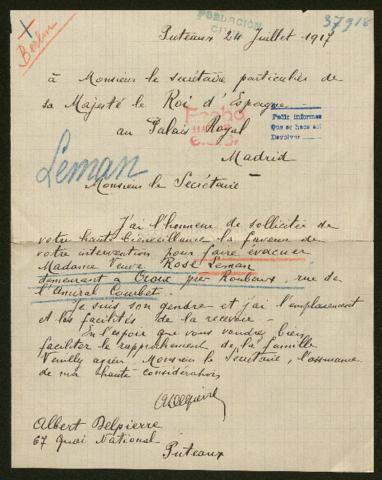 Berlin
FUNDACION
37918
Puteaux 24 Juillet 1917
à Monsieur le secrétaire particulier de
sa Majesté le Roi d'Espagne
au Palais Royal
Pedir informes
Que se haga asi
Devolver
Madrid
Leman
Monsieur le Secrétaire
J'ai l'honneur de solliciter de
votre haute bienveillance la faveur de
votre intervention pour faire évacuer
Madame Veuve Rose Leman
demeurant à Croix près Roubaix, rue de
l'Amiral Courbet.
Je suis son gendre et j'ai l'emplacement
et les facilités de la recevoir
En l'espoir que vous voudrez bien
faciliter le rapprochement de la famille
Veuillez agréer Monsieur le Secrétaire, l'assurance
de ma haute considération
Albert Delpierre
67 Quai National
Puteaux